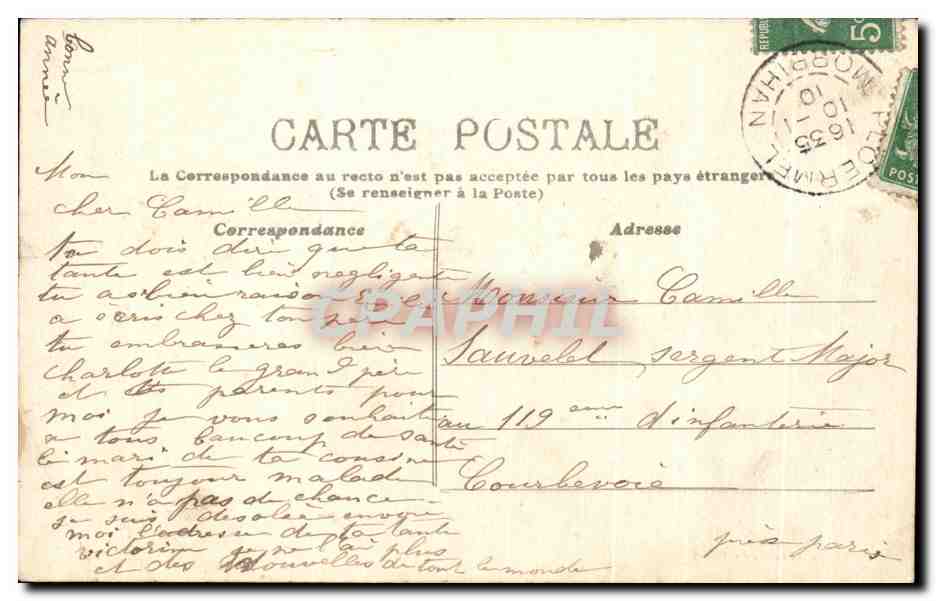 bonne
année
RÉPUB
5c
PLOERMEL
MORBIHAN
16 35
1 - 1
10
10
POST
CARTE POSTALE
La Correspondance au recto n'est pas acceptée par tous les pays étrangers
(Se renseigner à la Poste)
Correspondance
Adresse
Mon
cher Camille
tu dois dire que ta
tante est bien negligent
tu as bien raison
a ecris chez ton pere
tu embrasseras bien
Charlotte le grand père
et tes parents pour
moi je vous souhaite
a tous baucoup de santé
le mari de ta cousine
est toujour malade
elle n'a pas de chance
je suis desolée envoie
moi l'adresse de ta tante
victorine je ne l'ai plus
et des nouvelles de tout le monde
Monsieur Camille
Sauvelet sergent Major
au 119 eme d'infanterie
Courbevoie
près paris
CPAPHIL